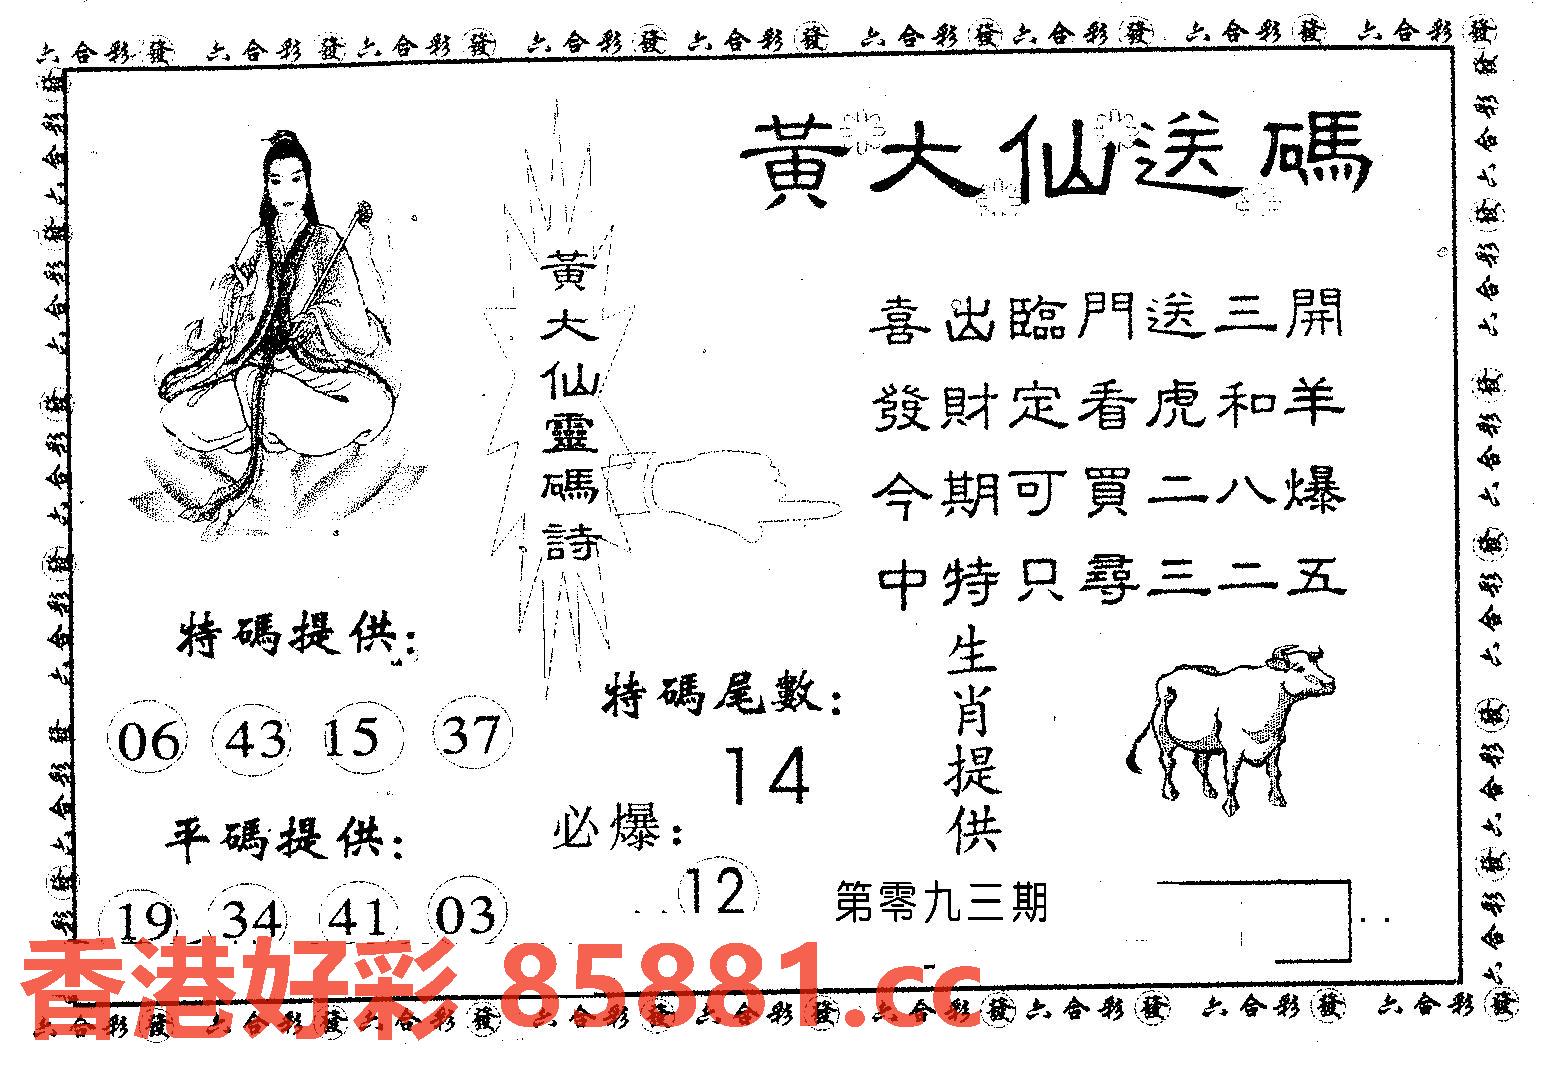 六合彩發 六合彩發 六合彩發 六合彩發 六合彩發 六合彩發 六合彩發 六合彩發 六合彩發
黃大仙送碼
黃大仙靈碼詩
喜出臨門送三開
發財定看虎和羊
今期可買二八爆
中特只尋三二五
特碼提供:
06 43 15 37
平碼提供:
19 34 41 03
特碼尾數:
14
必爆:
12
生肖提供
第零九三期
香港好彩 85881.cc
六合彩發 六合彩發 六合彩發 六合彩發 六合彩發 六合彩發 六合彩發 六合彩發 六合彩發